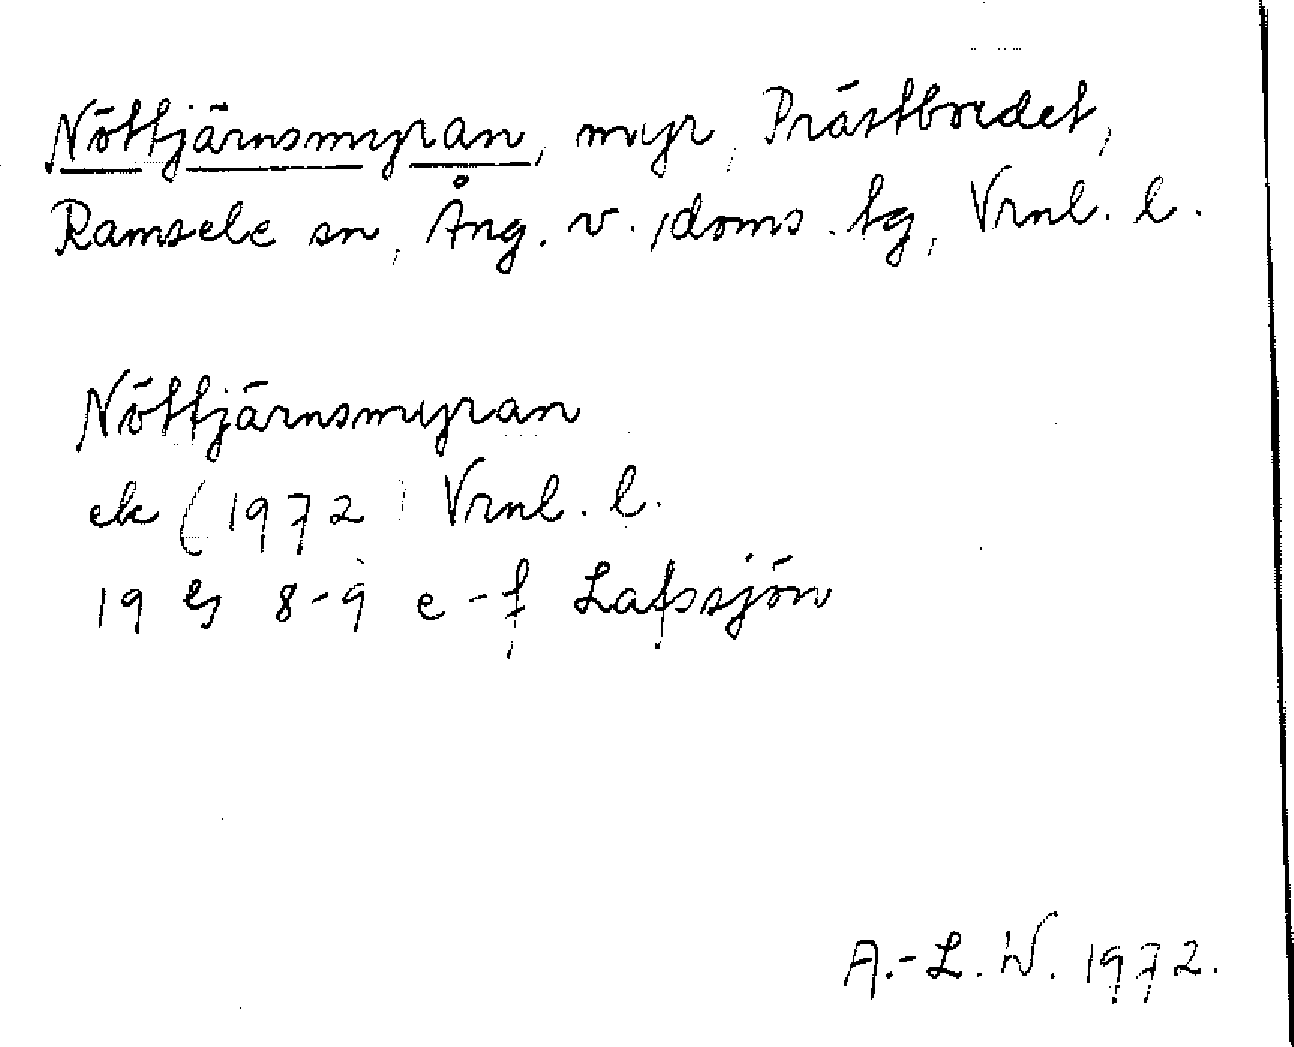 Nöttjärnsmyran, myr, Prästbordet,
Ramsele sn, Ång. v. doms. tg, Vrnl. l.
Nöttjärnsmyran
ek (1972) Vrnl. l.
19 G 8-9 e-f Lafssjön
A.-L. W. 1972.